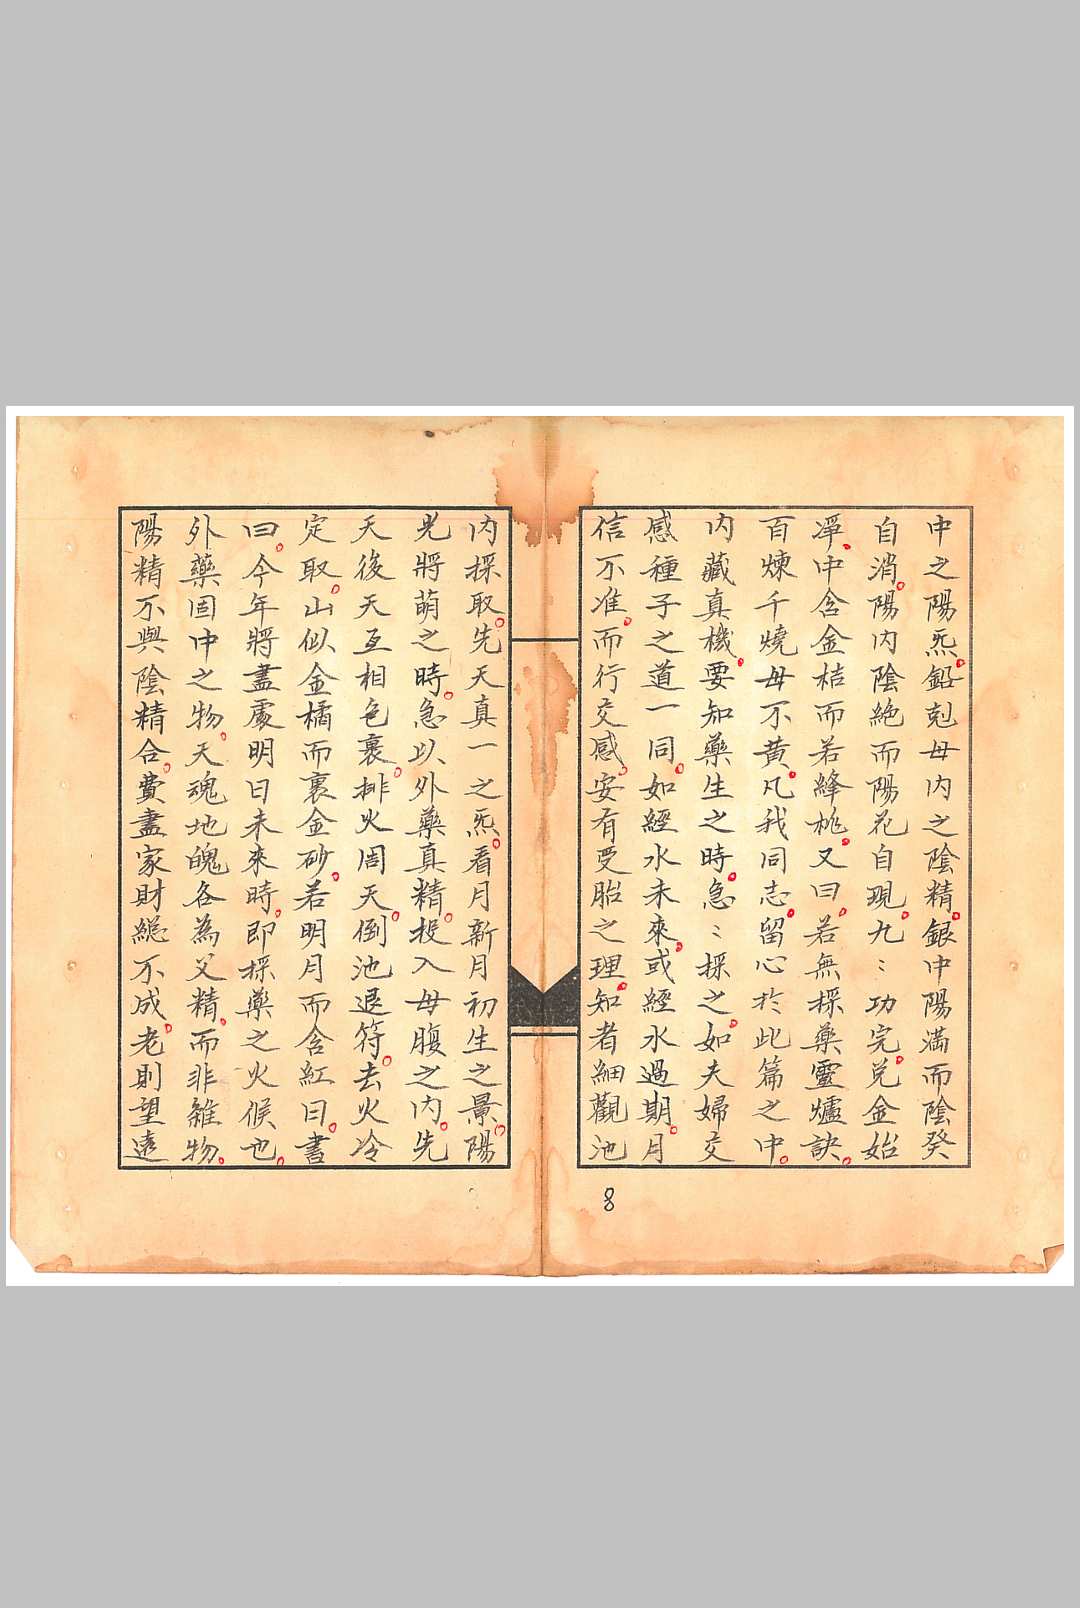 中之陽炁。鉛剋母内之陰精。銀中陽滿而陰癸
自消。陽内陰絶而陽花自現。九〻功完。兌金始
凈。中含金桔而若絳桃。又曰。若無採藥靈爐訣。
百煉千燒母不黄。凡我同志。留心於此篇之中。
内藏真機。要知藥生之時。急〻採之。如夫婦交
感種子之道一同。如經水未來。或經水過期。月
信不准。而行交感。安有受胎之理。知者細觀池
内採取。先天真一之炁。看月新月初生之景。陽
光將萌之時。急以外藥真精。投入母腹之内。先
天後天互相色裹。排火周天。倒池退符。去火冷
定取。山似金橘而裹金砂。若明月而含紅日。書
曰。今年將盡處明日未來時。即採藥之火候也。
外藥固中之物。天魂地魄各為父精。而非雜物。
陽精不與陰精合。費盡家財縂不成。老則望遠
8